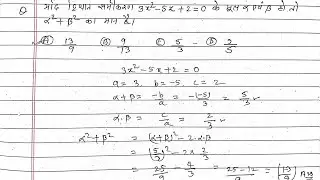 Q यदि द्विघात समीकरण 3x²-5x+2=0 के मूल α एवं β हो तो
α²+β² का मान है।
(A) 13/9 (B) 9/13 (C) 5/3 (D) 2/5
3x²-5x+2=0
a=3, b=-5, c=2
α+β = -b/a = -(-5)/3 = 5/3
α.β = c/a = 2/3
α²+β² = (α+β)² - 2.α.β
= (5/3)² - 2×2/3
= 25/9 - 4/3 = 25-12/9 = (13/9) Ans